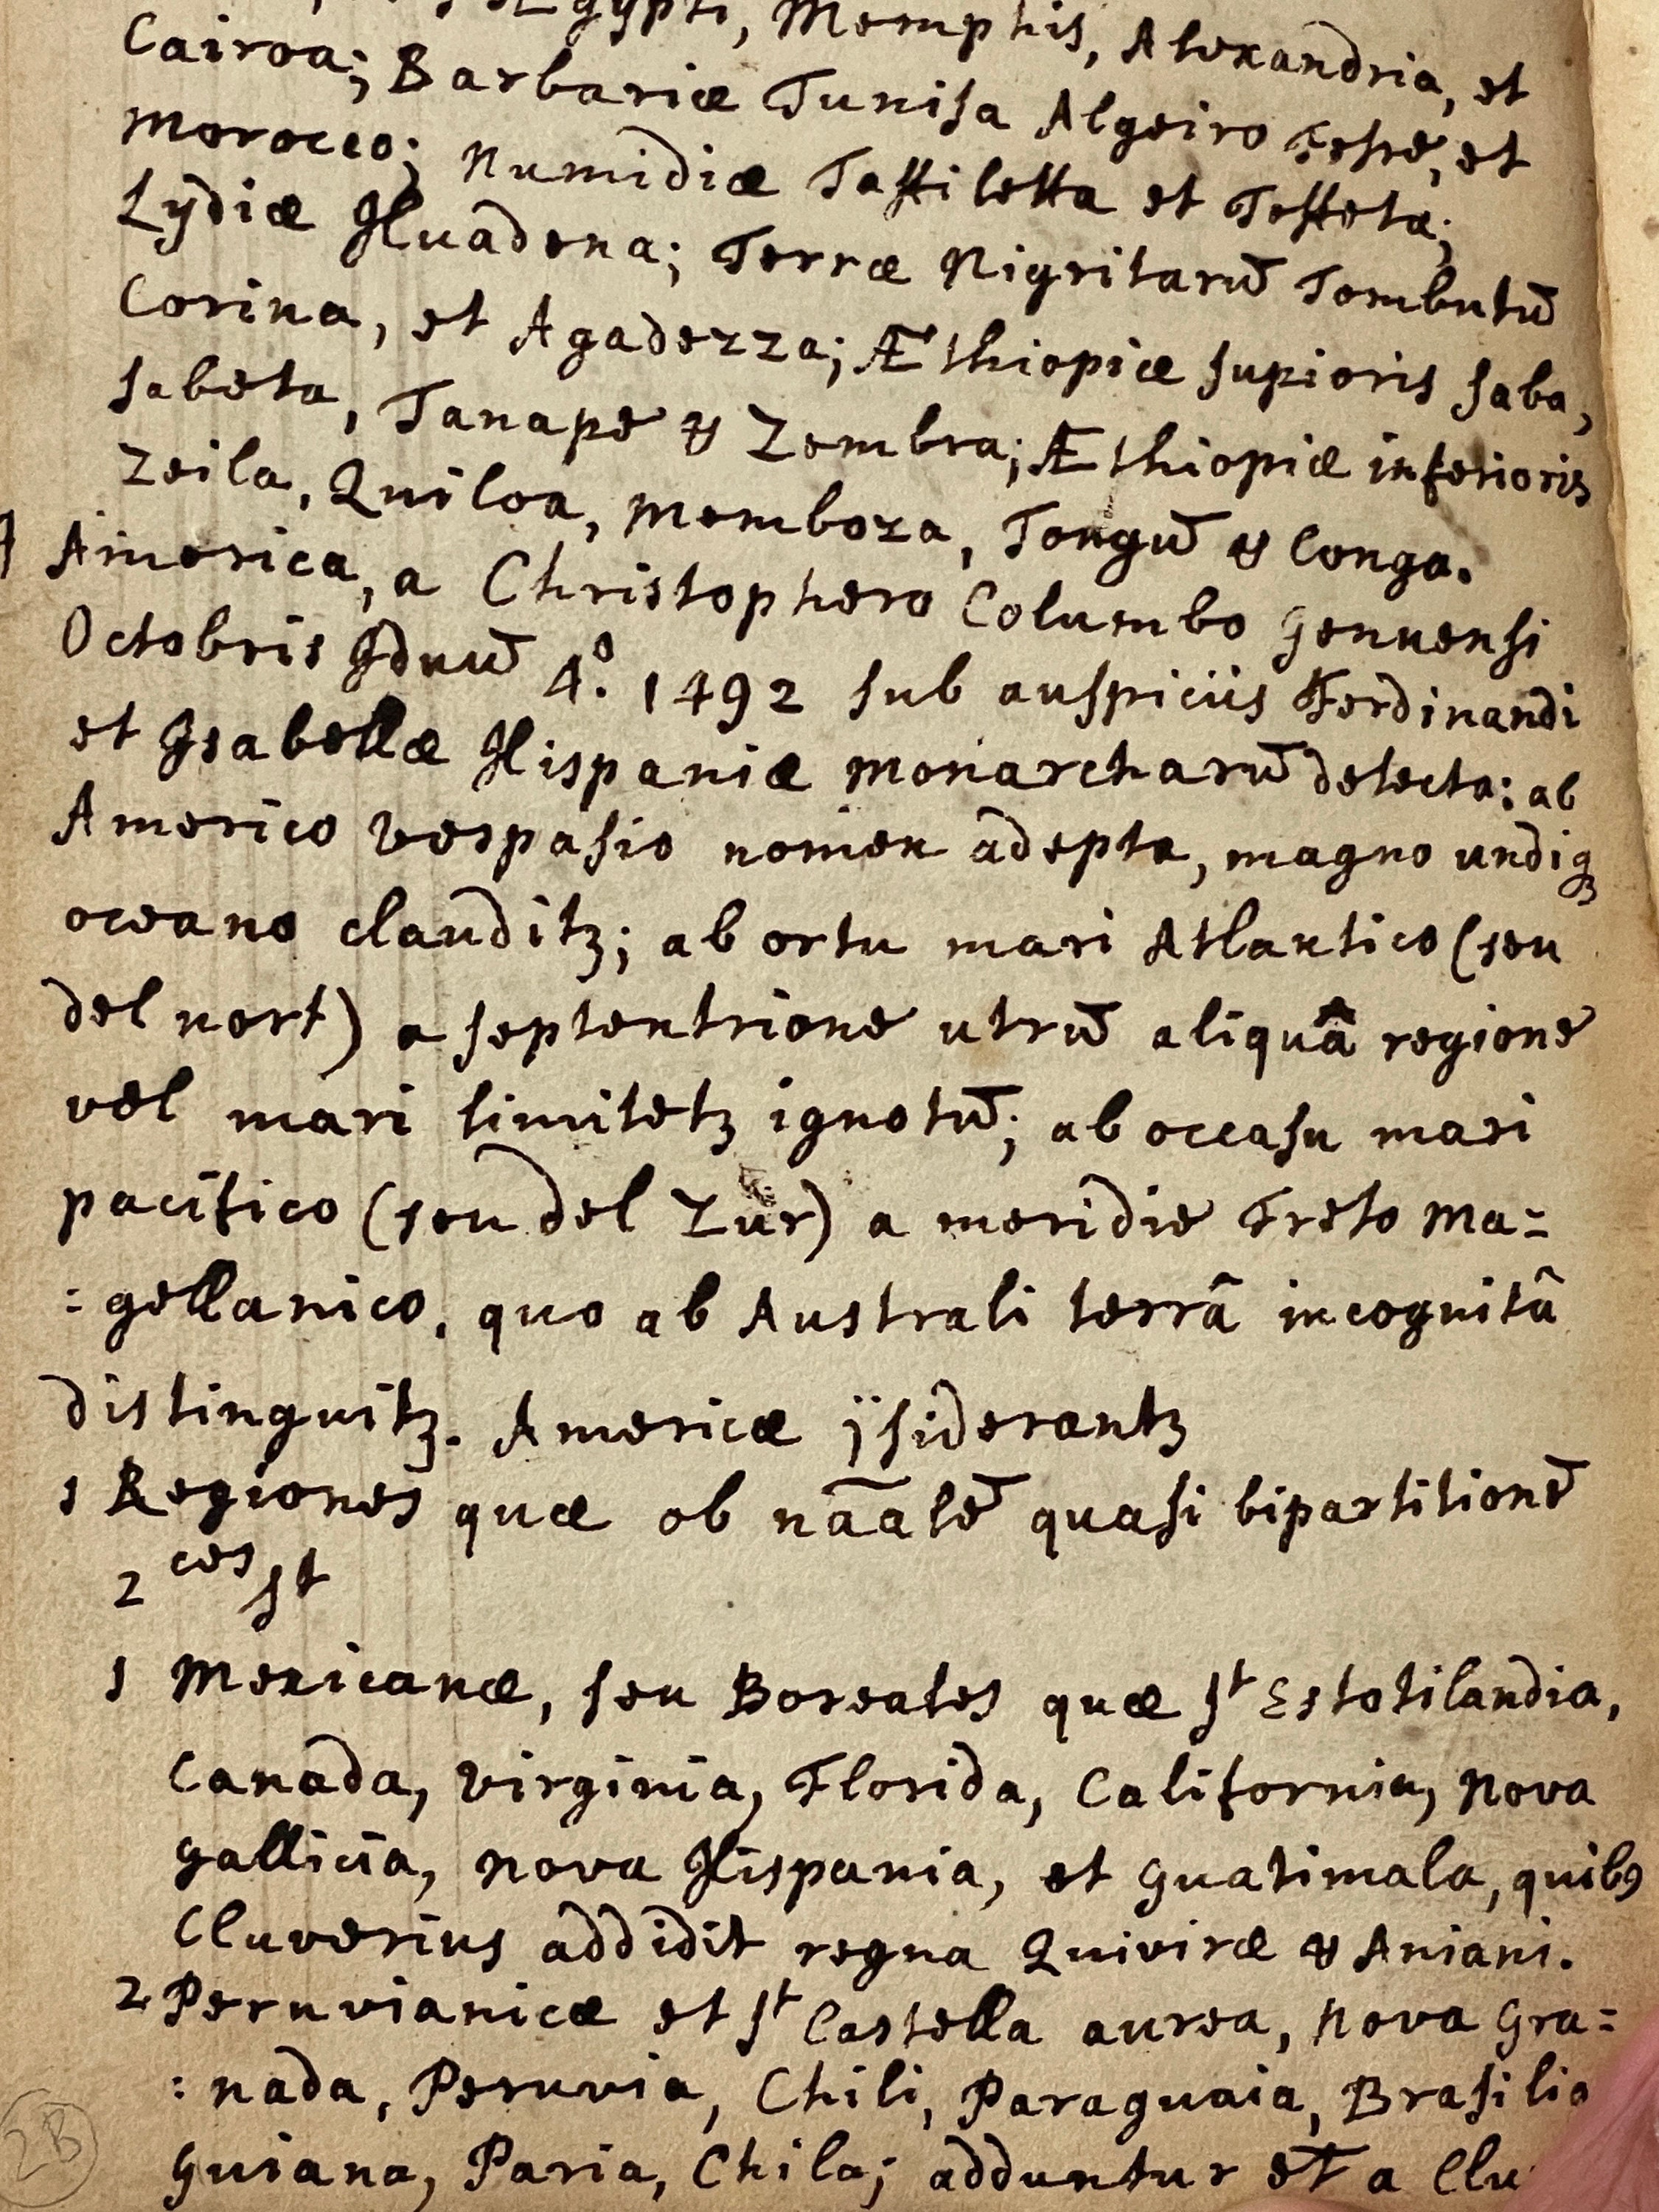 Ægypti, Memphis, Alexandria, et
Cairoa; Barbariæ Tunisa Algeiro Fesse, et
Morocco; Numidiæ Taffiletta et Teffeta;
Lydiæ Huadena; Terræ Nigritarū Tombutū
Corina, et Agadezza; Æthiopiæ supioris Saba,
Sabeta, Tanape & Zembra; Æthiopiæ inferioris
Zeila, Quiloa, Memboza, Tongū & Conga.
America, a Christophero Columbo Genuensi
Octobris Iduū 4.º 1492 sub auspiciis Ferdinandi
et Isabellæ Hispaniæ monarcharū detecta: ab
Americo Vespasio nomen adepta, magno undiqꝫ
oceano clauditꝫ; ab ortu mari Atlantico (seu
del nort) a septentrione utrū aliquâ regione
vel mari limitetꝫ ignotū; ab occasu mari
pacifico (seu del Zur) a meridie Freto Ma=
=gellanico, quo ab Australi terrâ incognitâ
distinguitꝫ. Americæ ïsiderantꝫ
1 Regiones quæ ob nāalē quasi bipartitionē
2 ces st
1 Mexicanæ, seu Boreales quæ st Estotilandia,
Canada, Virginia, Florida, California, Nova
Gallicia, Nova Hispania, et Guatimala, quibꝰ
Cluverius addidit regna Quiviræ & Aniani.
2 Peruvianicæ et st Castella aurea, Nova Gra=
=nada, Peruvia, Chili, Paraguaia, Brasilia
Guiana, Paria, Chila; adduntur et a Clu
2B